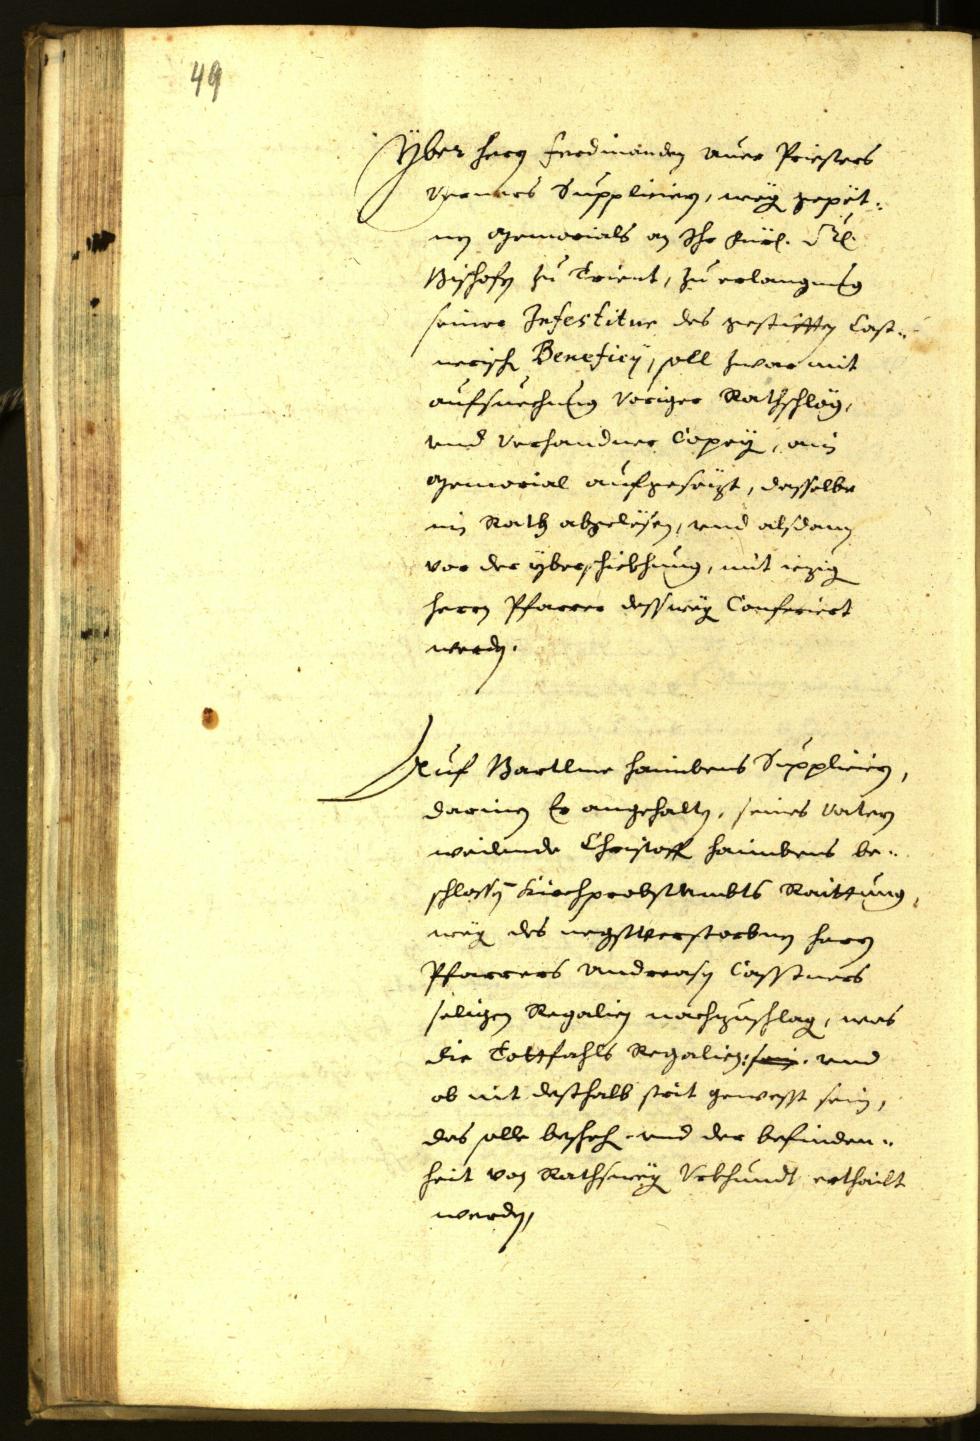 49
Yber herrn Ferdinanden Auer Priesters
Suppliciern, weg gepet¬
nen Memorials an Ihr Fürstl. Gl.
Bischofn zu Trient, zu erlangung
seiner Infestitur des gestifften Cast¬
nerisch Beneficÿ, soll zwar mit
aufsuechung voriger Rathschläg,
vnd verhandner Copeÿ, ain
Memorial aufgesetzt, dasselbe
im Rath abgelesen, vnd alsdann
vor der yberschickhung, mit iezig
herrn Pfarrer dessweg Conferiert
werdn.
Auf Bartlme haimbens Suppliciern,
darinen Er angehaltn, seines Vatern
weilende Christoff haimbens be¬
schlossn Kirchprobstambts Raittung,
weg des negstverstorbnen herrn
Pfarrers Andreasn Casstners
seligen Regalien nachzuschlag, was
die Todtfahls Regalien: sein. vnd
ob nit desthalb strit gewesst sein,
das solle bescheh vnd der befinden¬
heit von Rathsweg Vrkhundt erthailt
werdn,